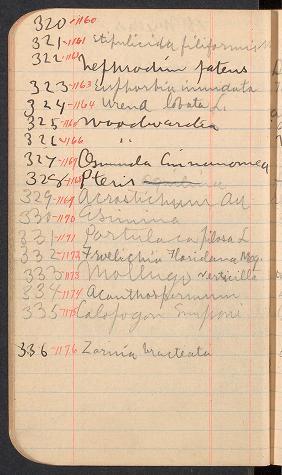 320 -1160
321 -1161 Stipulicida filiformis
322 -1162 Nephrodin patens
323 -1163 Euphorbia inundata
324 -1164 Urena lobata L.
325 -1165 Woodwardia
326 -1166 "
327 -1167 Osmunda Cinnamomea
328 -1168 Pteris
329 -1169 Acrostichum Au
330 -1170 Asimina
331 -1171 Portulaca pilosa L
332 -1172 Froelichia Floridana Moq.
333 -1173 Mollugo verticilla
334 -1174 Acanthospermum
335 -1175 Calopogon Simpsoni
336 -1176 Zamia bracteata